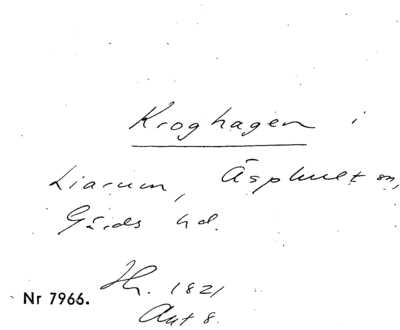 Kroghagen i
Liarum, Äsphult sn,
Gärds hd.
Hr. 1821
Nr 7966.
Akt 8.